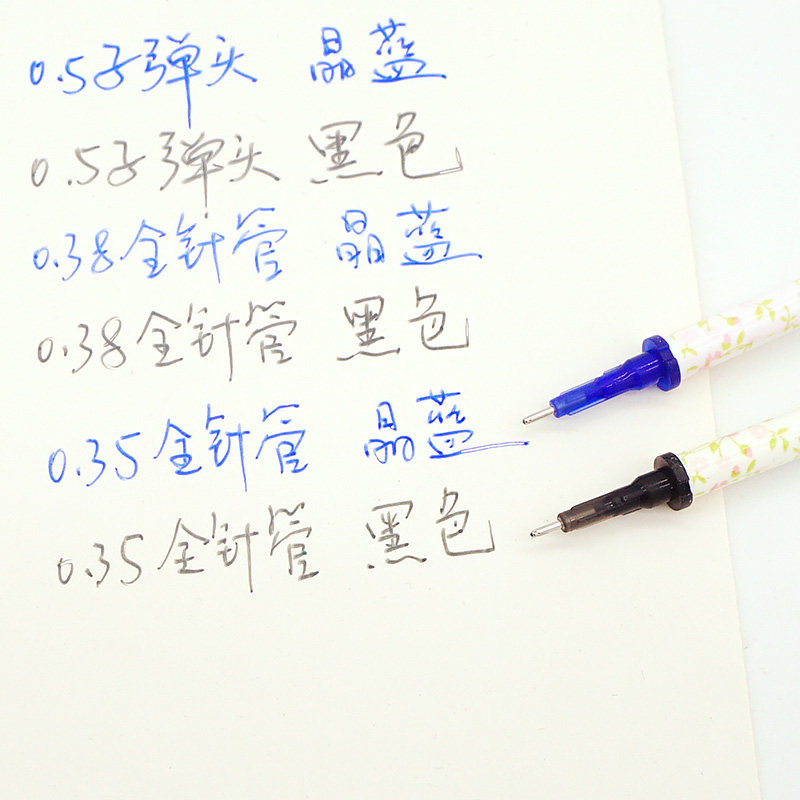 0.5子弹头 晶蓝
0.5子弹头 黑色
0.38全针管 晶蓝
0.38全针管 黑色
0.35全针管 晶蓝
0.35全针管 黑色